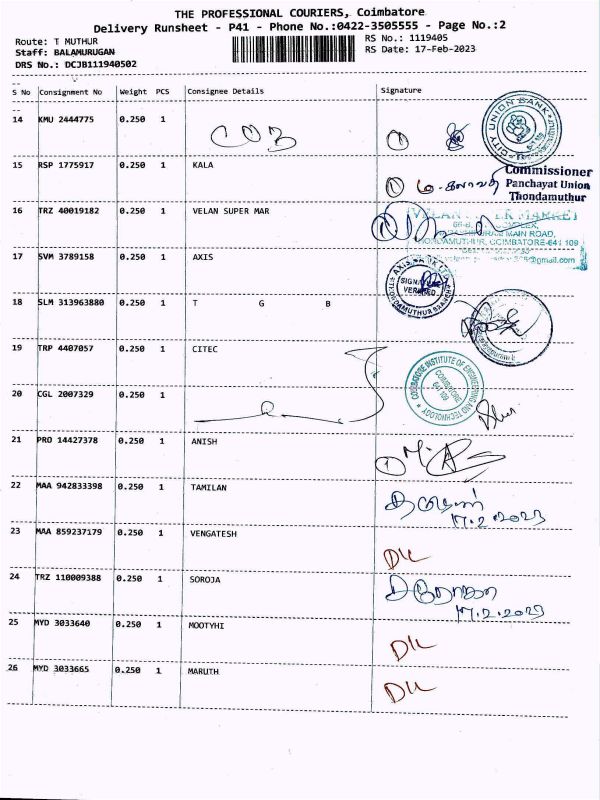 THE PROFESSIONAL COURIERS, Coimbatore
Delivery Runsheet - P41 - Phone No.:0422-3505555 - Page No.:2
Route: T MUTHUR
RS No.: 1119405
Staff: BALAMURUGAN
RS Date: 17-Feb-2023
DRS No.: DCJB111940502
S No Consignment No Weight PCS Consignee Details Signature
14 KMU 2444775 0.250 1 COB
CITY UNION BANK
15 RSP 1775917 0.250 1 KALA
Commissioner
Panchayat Union
Thondamuthur
16 TRZ 40019182 0.250 1 VELAN SUPER MAR
MAIN ROAD,
COIMBATORE-641 109
@gmail.com
17 SVM 3789158 0.250 1 AXIS
THONDAMUTHUR BRANCH
18 SLM 313963880 0.250 1 T G B
19 TRP 4407057 0.250 1 CITEC
COIMBATORE INSTITUTE OF ENGINEERING AND TECHNOLOGY
COIMBATORE
641 109
20 CGL 2007329 0.250 1
21 PRO 14427378 0.250 1 ANISH
22 MAA 942833398 0.250 1 TAMILAN
17.2.2023
23 MAA 859237179 0.250 1 VENGATESH
DIL
24 TRZ 110009388 0.250 1 SOROJA
17.2.2023
25 MYD 3033640 0.250 1 MOOTYHI
DIL
26 MYD 3033665 0.250 1 MARUTH
DIL